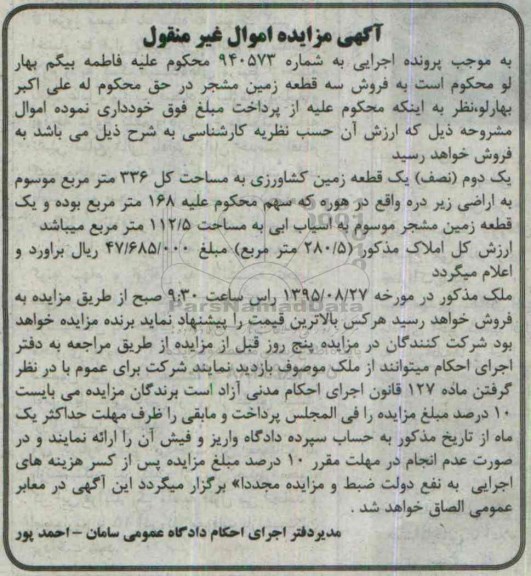 آگهی مزایده اموال غیر منقول
به موجب پرونده اجرایی به شماره ۹۴۰۵۷۳ محکوم علیه فاطمه بیگم بهار
لو محکوم است به فروش سه قطعه زمین مشجر در حق محکوم له علی اکبر
بهارلو،نظر به اینکه محکوم علیه از پرداخت مبلغ فوق خودداری نموده اموال
مشروحه ذیل که ارزش آن حسب نظریه کارشناسی به شرح ذیل می باشد به
فروش خواهد رسید
یک دوم (نصف) یک قطعه زمین کشاورزی به مساحت کل ۳۳۶ متر مربع موسوم
به اراضی زیر دره واقع در هوره که سهم محکوم علیه ۱۶۸ متر مربع بوده و یک
قطعه زمین مشجر موسوم به آسیاب ابی به مساحت ۱۱۲/۵ متر مربع میباشد
ارزش کل املاک مذکور (۲۸۰/۵ متر مربع) مبلغ ۴۷/۶۸۵/۰۰۰ ریال براورد و
اعلام میگردد
ملک مذکور در مورخه ۱۳۹۵/۰۸/۲۷ راس ساعت ۹:۳۰ صبح از طریق مزایده به
فروش خواهد رسید هرکس بالاترین قیمت را پیشنهاد نماید برنده مزایده خواهد
بود شرکت کنندگان در مزایده پنج روز قبل از مزایده از طریق مراجعه به دفتر
اجرای احکام میتوانند از ملک موصوف بازدید نمایند شرکت برای عموم با در نظر
گرفتن ماده ۱۲۷ قانون اجرای احکام مدنی آزاد است برندگان مزایده می بایست
۱۰ درصد مبلغ مزایده را فی المجلس پرداخت و مابقی را ظرف مهلت حداکثر یک
ماه از تاریخ مذکور به حساب سپرده دادگاه واریز و فیش آن را ارائه نمایند و در
صورت عدم انجام در مهلت مقرر ۱۰ درصد مبلغ مزایده پس از کسر هزینه های
اجرایی به نفع دولت ضبط و مزایده مجددا» برگزار میگردد این آگهی در معابر
عمومی الصاق خواهد شد .
مدیردفتر اجرای احکام دادگاه عمومی سامان - احمد پور
ParsNamadData